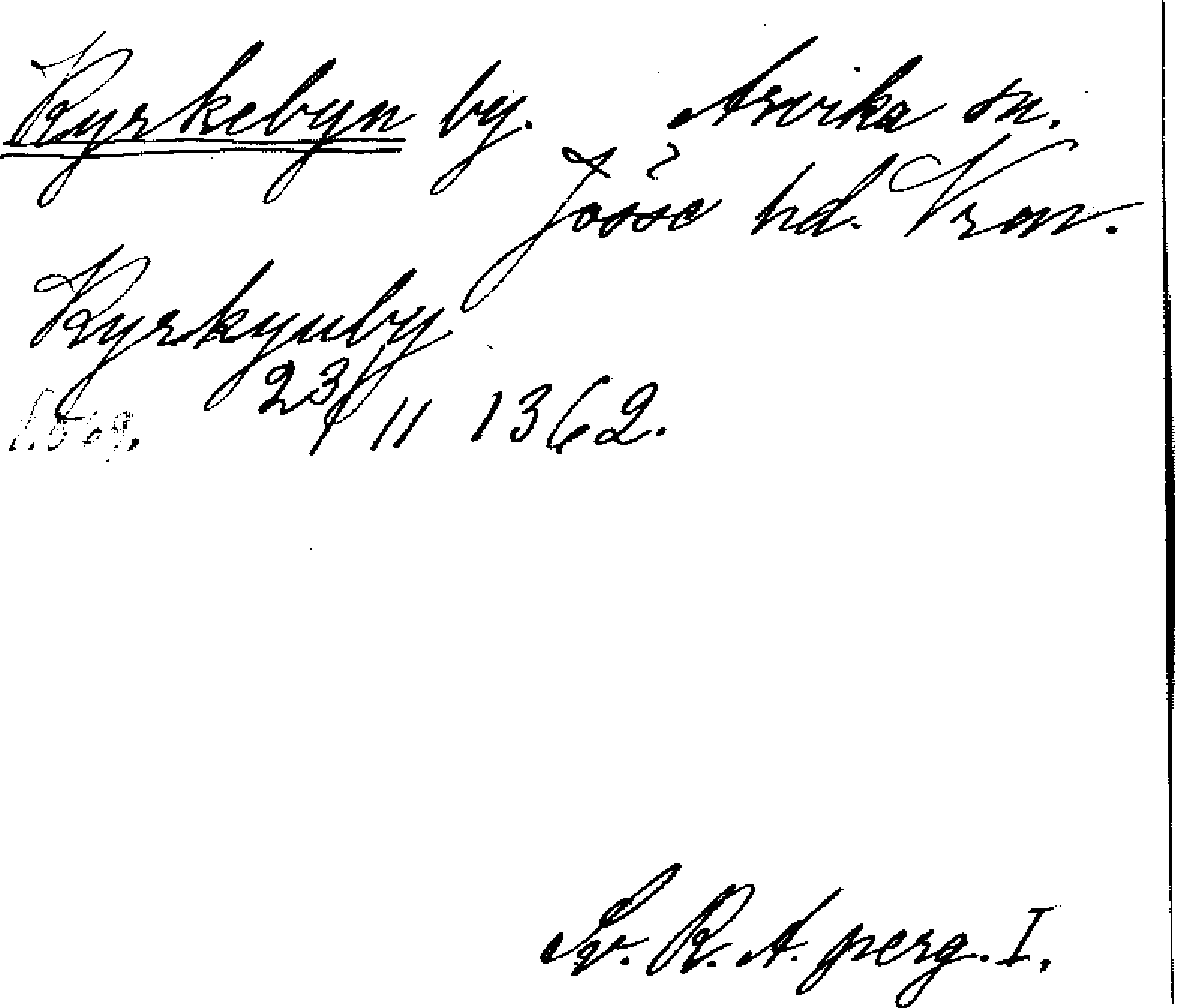 Kyrkebyn by. Arvika sn.
Jösse hd. Vrm.
Kyrkyuby
23/11 1362.
Sv. R. A. perg. I.